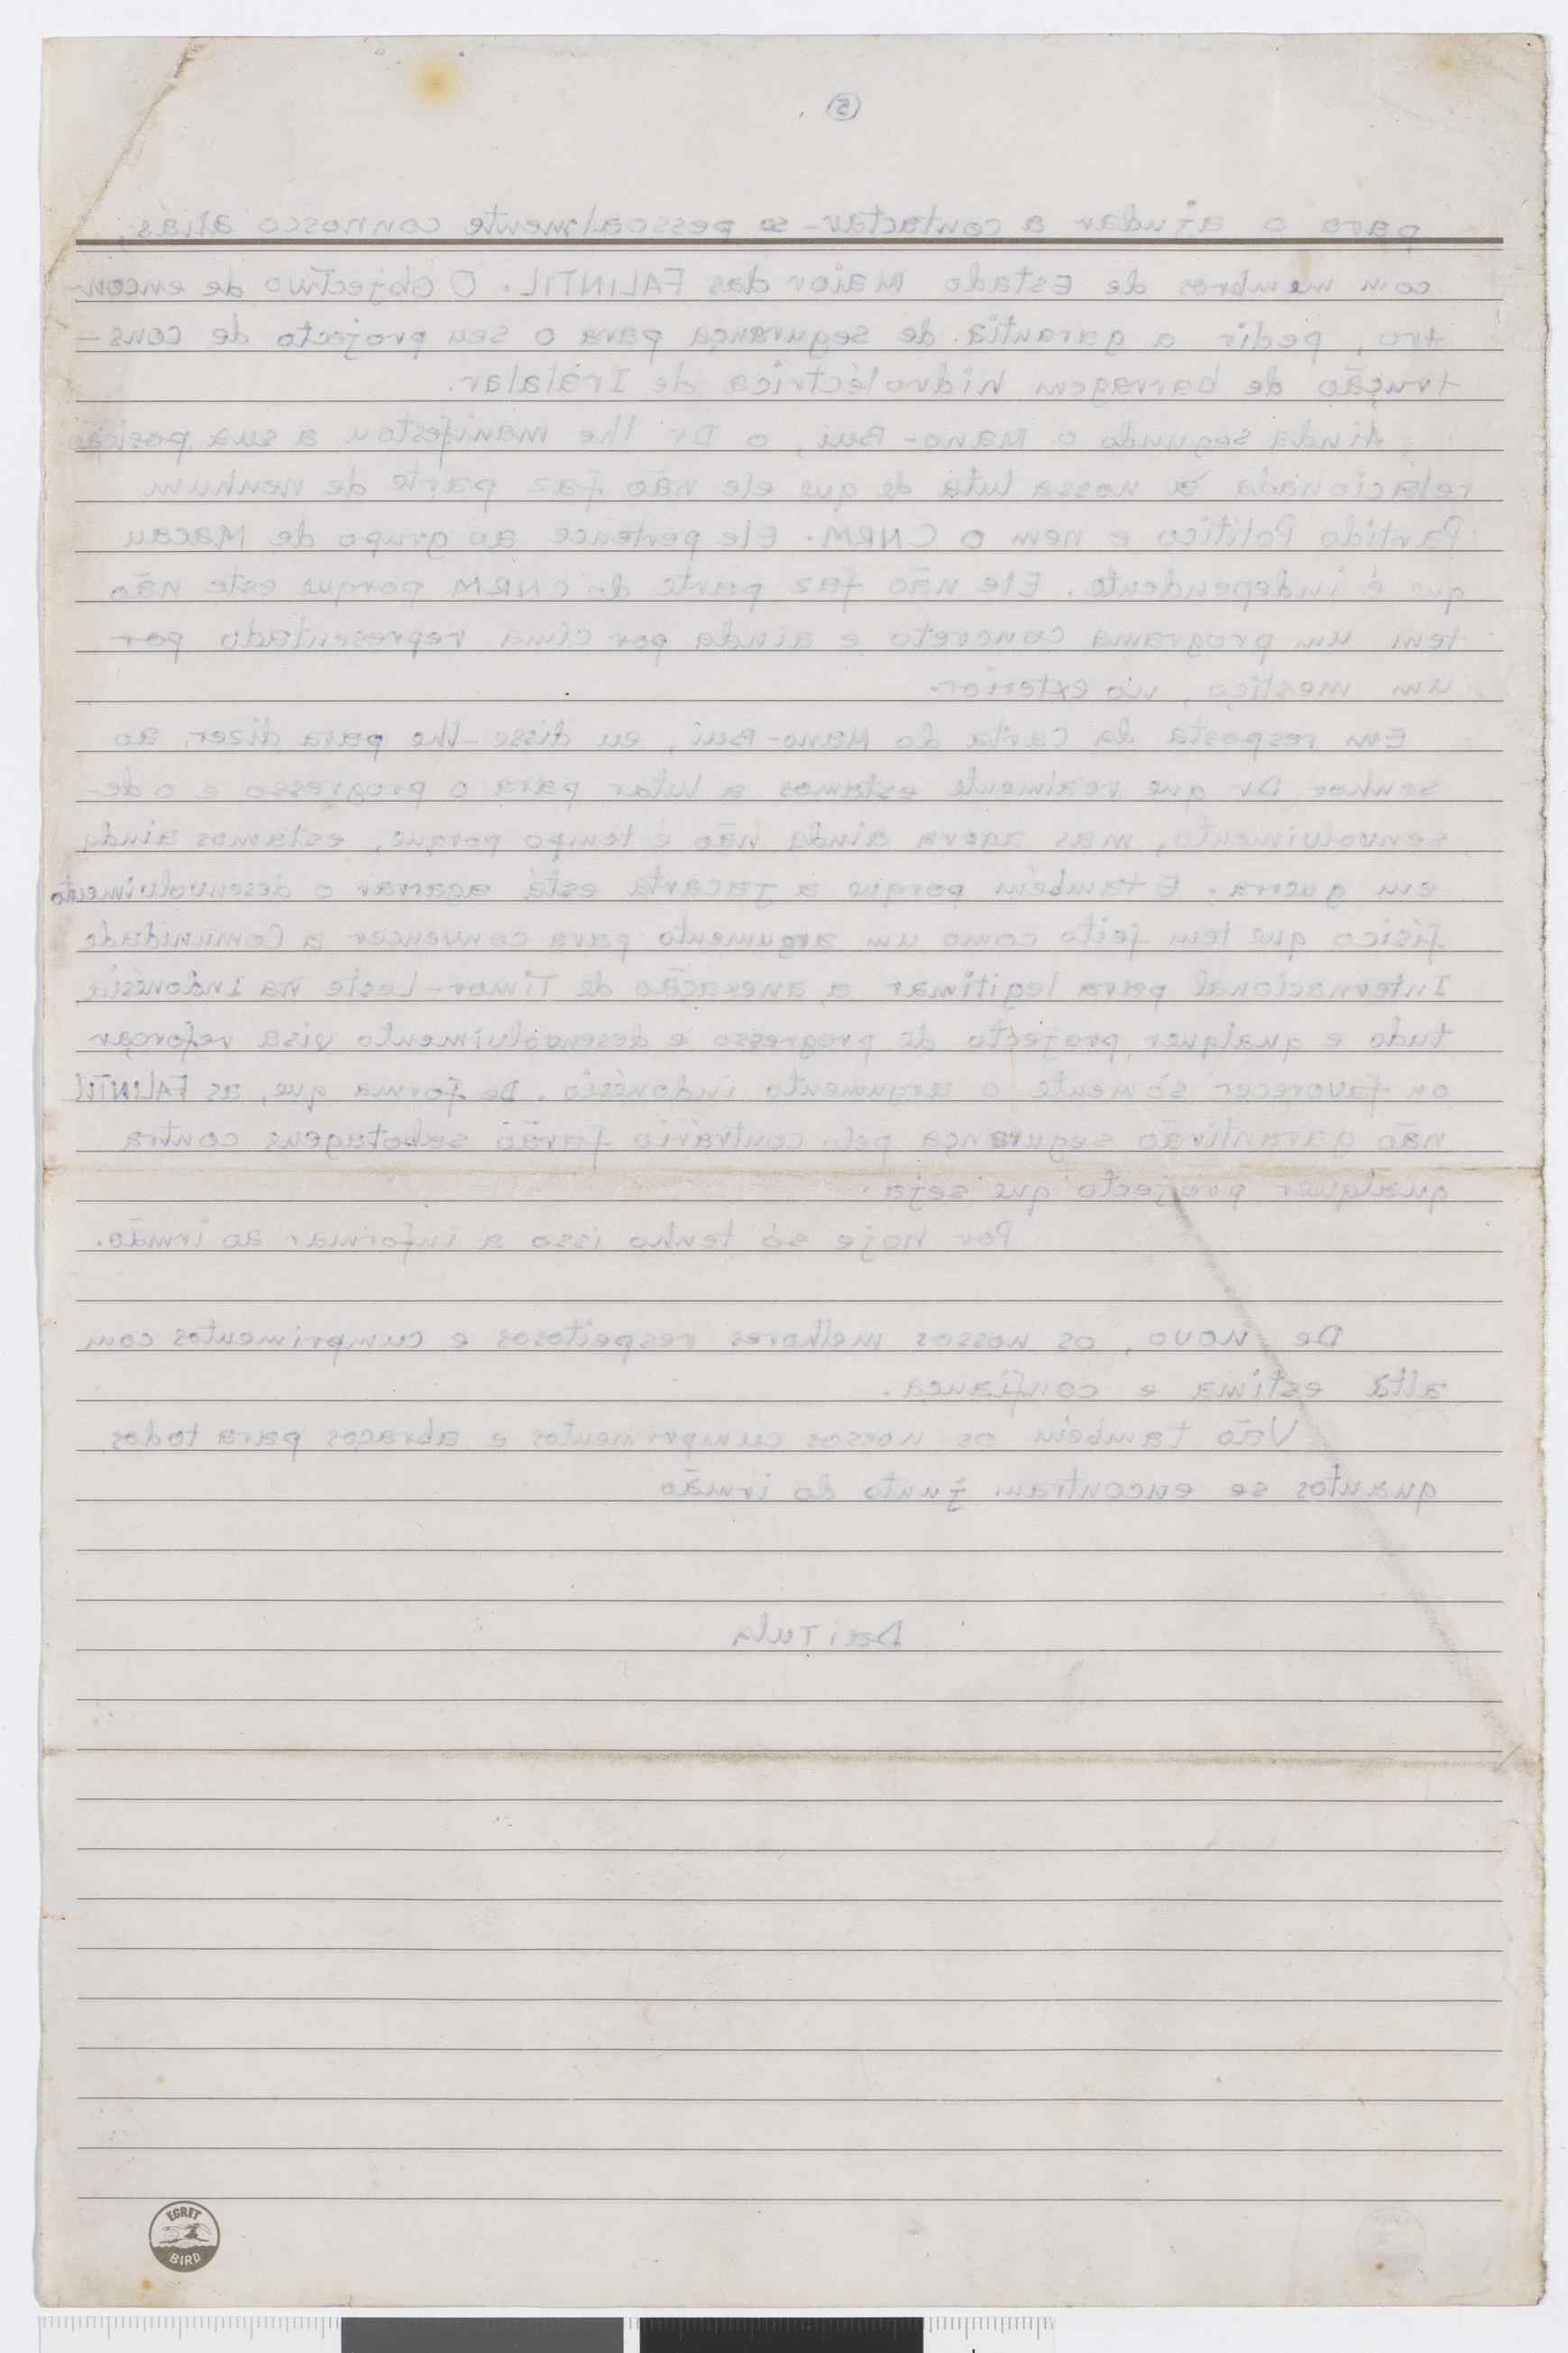 5
para o ajudar a contactar-se pessoalmente connosco aliás,
com membros de Estado Maior das FALINTIL. O objectivo de encon-
tro, pedir a garantia de segurança para o seu projecto de cons-
trução de barragem hidroléctrica de Iralalar.
Ainda segundo o Mano-Bui, o Dr lhe manifestou a sua posição
relacionada à nossa luta de que ele não faz parte de nenhum
Partido Politico e nem o CNRM. Ele pertence ao grupo de Macau
que é independente. Ele não faz parte do CNRM porque este não
tem um programa concreto e ainda por cima representado por
um mestiço, no exterior.
Em resposta da carta do Mano-Bui, eu disse-lhe para dizer, ao
senhor Dr que realmente estamos a lutar para o progresso e o de-
senvolvimento, mas agora ainda não é tempo porque, estamos ainda
em guerra. E também porque a Jacarta está agarrar o desenvolvimento
físico que tem feito como um argumento para convencer a Comunidade
Internacional para legitimar a anexação de Timor-Leste na Indonésia
tudo e qualquer projecto de progresso e desenvolvimento visa reforçar
ou favorecer sòmente o argumento indonésio. De forma que, as FALINTIL
não garantirão segurança pelo contrário farão sabotagens contra
qualquer projecto que seja.
Por hoje só tenho isso a informar ao irmão.
De novo, os nossos melhores respeitosos e cumprimentos com
alta estima e confiança.
Vão também os nossos cumprimentos e abraços para todos
quantos se encontram junto do irmão
Dari Tula
EGRET
BIRD